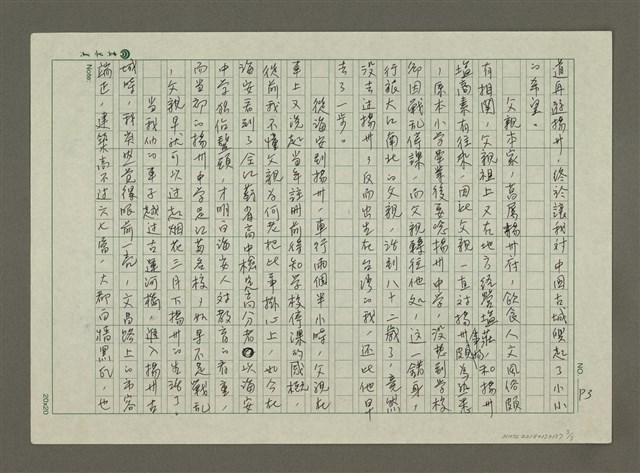 道再遊揚州，終於讓我對中國古城興起了小小
的希望。
父親本家，高屬揚州府，飲食、人文風俗頗
有相關，父親祖上又在地方經營鹽莊，和揚州
鹽商素有往來，因此父親一直對揚州頗為熟悉
，原本小學畢業後要唸揚州中學，沒想到學校
卻因戰亂停課，而父親轉往他處，這一錯身，
行旅大江南北的父親，活到八十二歲了，竟然
沒去過揚州，反而出生在台灣的我，還比他早
去了一步。
從海安到揚州，車行兩個半小時，父親在
車上又說起當年註冊前得知學校停課的感慨，
從前我不懂父親為何老把此事掛心上，如今在
海安看到了全江蘇省高中檢定高分者以海安
中學領銜鰲頭，才明白海安人對教育的看重，
而當初的揚州中學是江蘇名校，如果不是戰亂
，父親早就可以過起烟花三月下揚州的生活了。
當我們的車子越过古運河橋，進入揚州古
城時，我突然覺得眼前一亮，文昌路上的市容
端正，建築高不过六七層，大都白牆黑瓦，也
Note:
NO P3
20x20
3/9